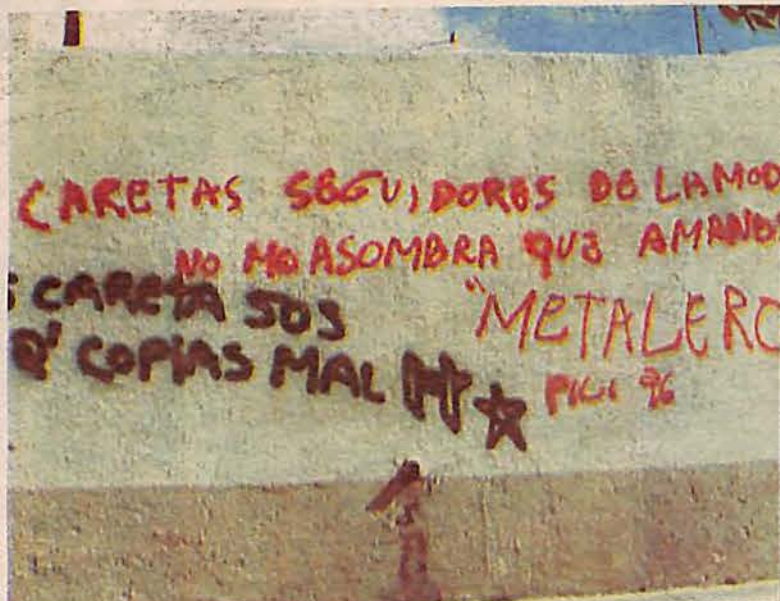 CARETAS SEGUIDORES DE LA MOD
NO ME ASOMBRA QUE AMANE
"METALERO
PILI 96
CARETA SOS
Q' COPIAS MAL